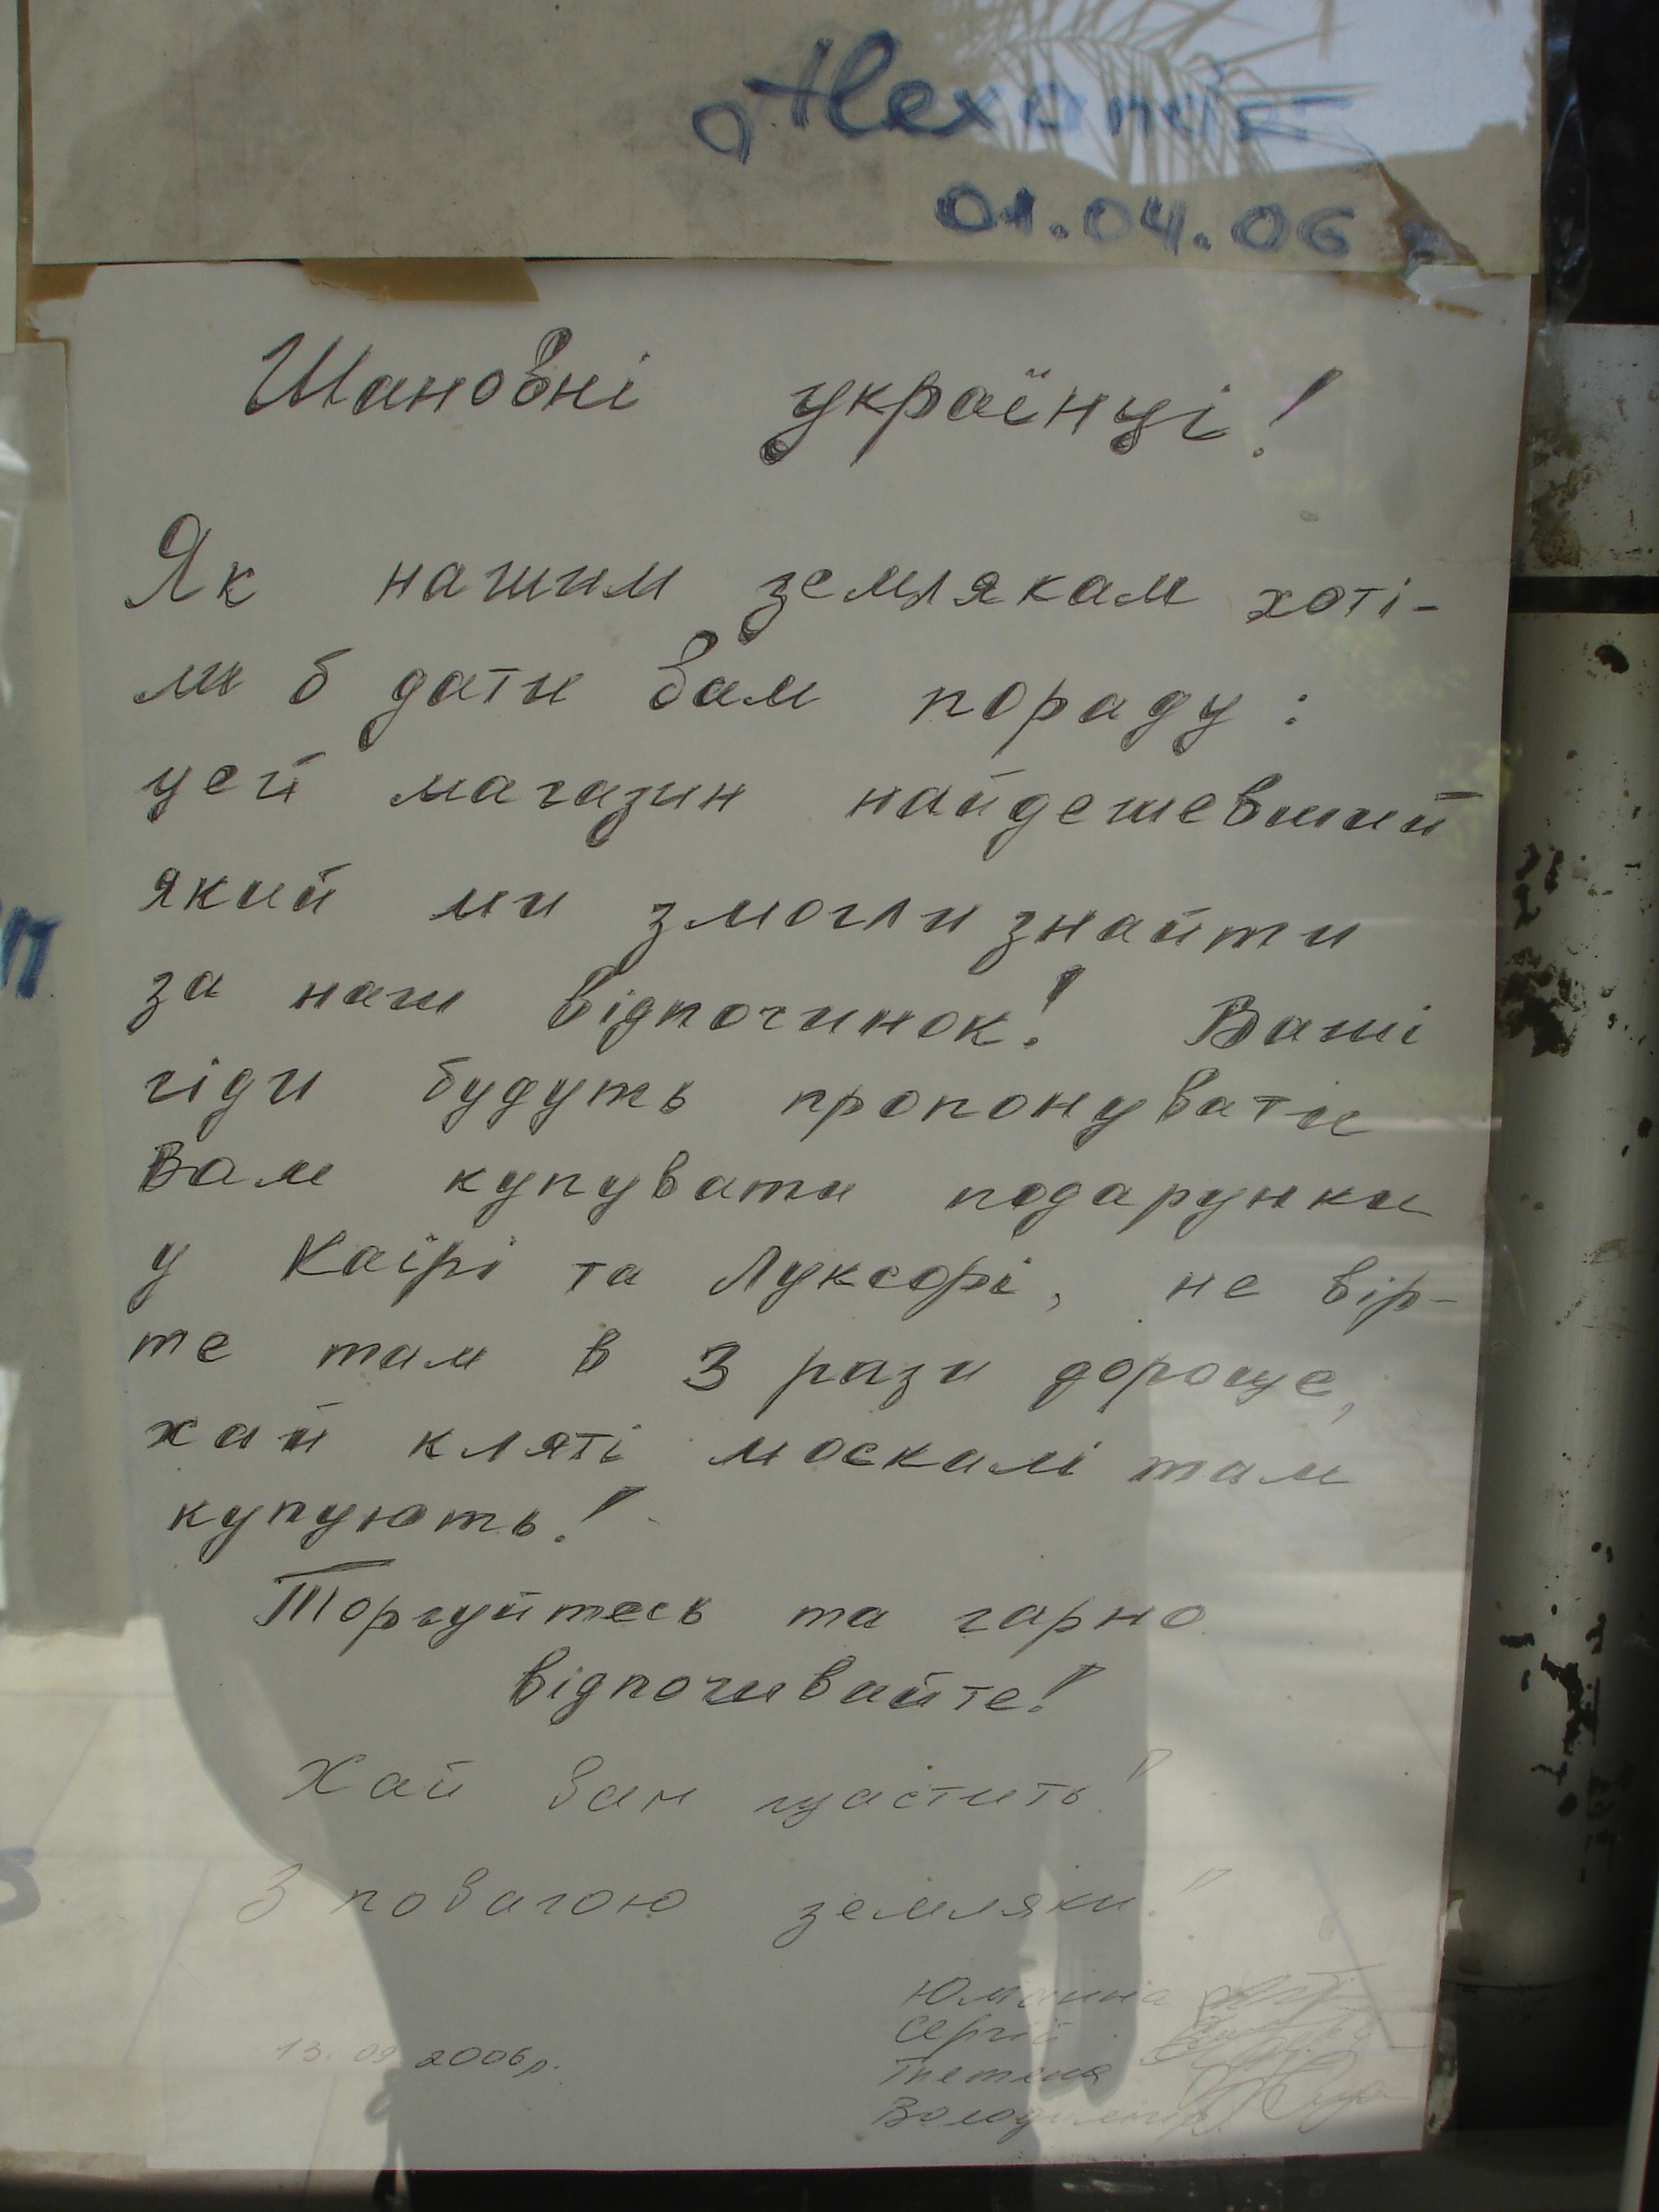 01.04.06
Шановні українці!
Як нашим землякам хоті-
ли б дати вам пораду:
цей магазин найдешевший
який ми змогли знайти
за наш відпочинок! Ваші
гіди будуть пропонувати
Вам купувати подарунки
у Каїрі та Луксорі, не вір-
те там в 3 рази дорожче,
хай кляті москалі там
купують!
Торгуйтесь та гарно
відпочивайте!
Хай Вам щастить!
З повагою земляки!
Юліанна
Сергій
13.09.2006р. Тетяна
Володимир